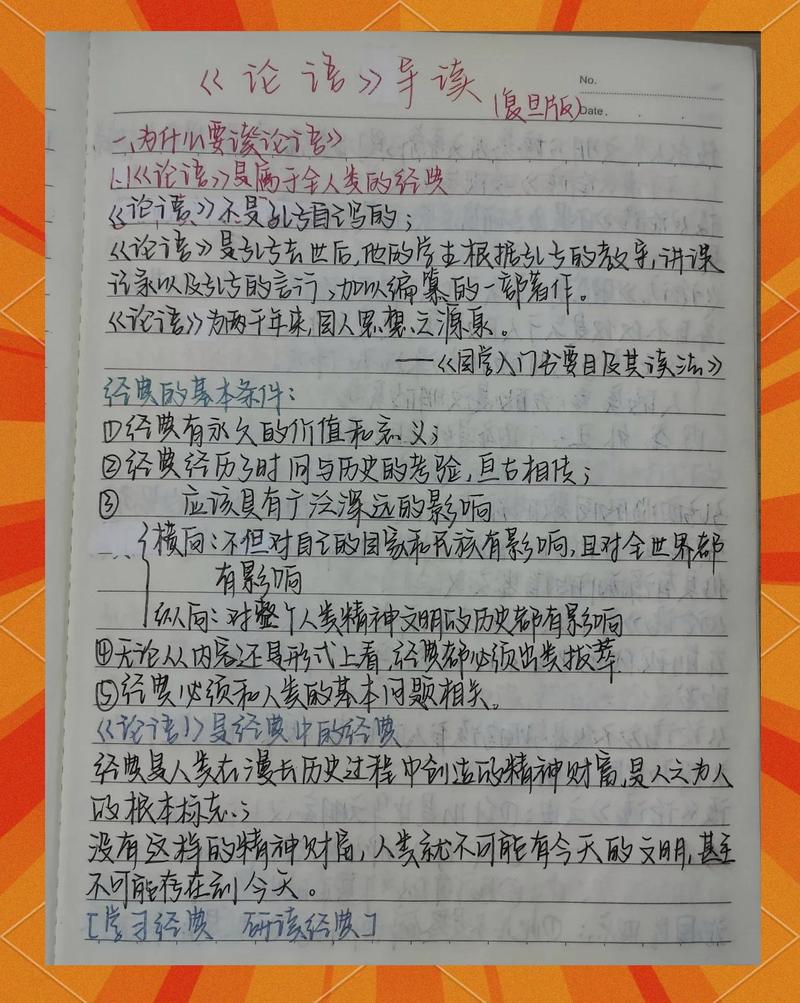 《论语》导读
(复旦版)
No.
Date
一、为什么要读《论语》
(一)《论语》是属于全人类的经典
《论语》不是孔子自己写的；
《论语》是孔子去世后，他的学生根据孔子的教导，讲课
记录以及孔子的言行，加以编纂的一部著作。
《论语》为两千年来，国人思想之源泉。
——《国学入门书要目及其读法》
经典的基本条件：
①经典有永久的价值和意义；
②经典经历了时间与历史的考验，亘古相传；
③ 应该具有广泛深远的影响
横向：不但对自己的国家和民族有影响，且对全世界都
有影响
纵向：对整个人类精神文明的历史都有影响
④无论从内容还是形式上看，经典都必须出类拔萃
⑤经典必须和人类的基本问题相关。
《论语》是经典中的经典
经典是人类在漫长历史过程中创造的精神财富，是人之为人
的根本标志；
没有这样的精神财富，人类就不可能有今天的文明，甚至
不可能存在到今天。
[学习经典 研读经典]